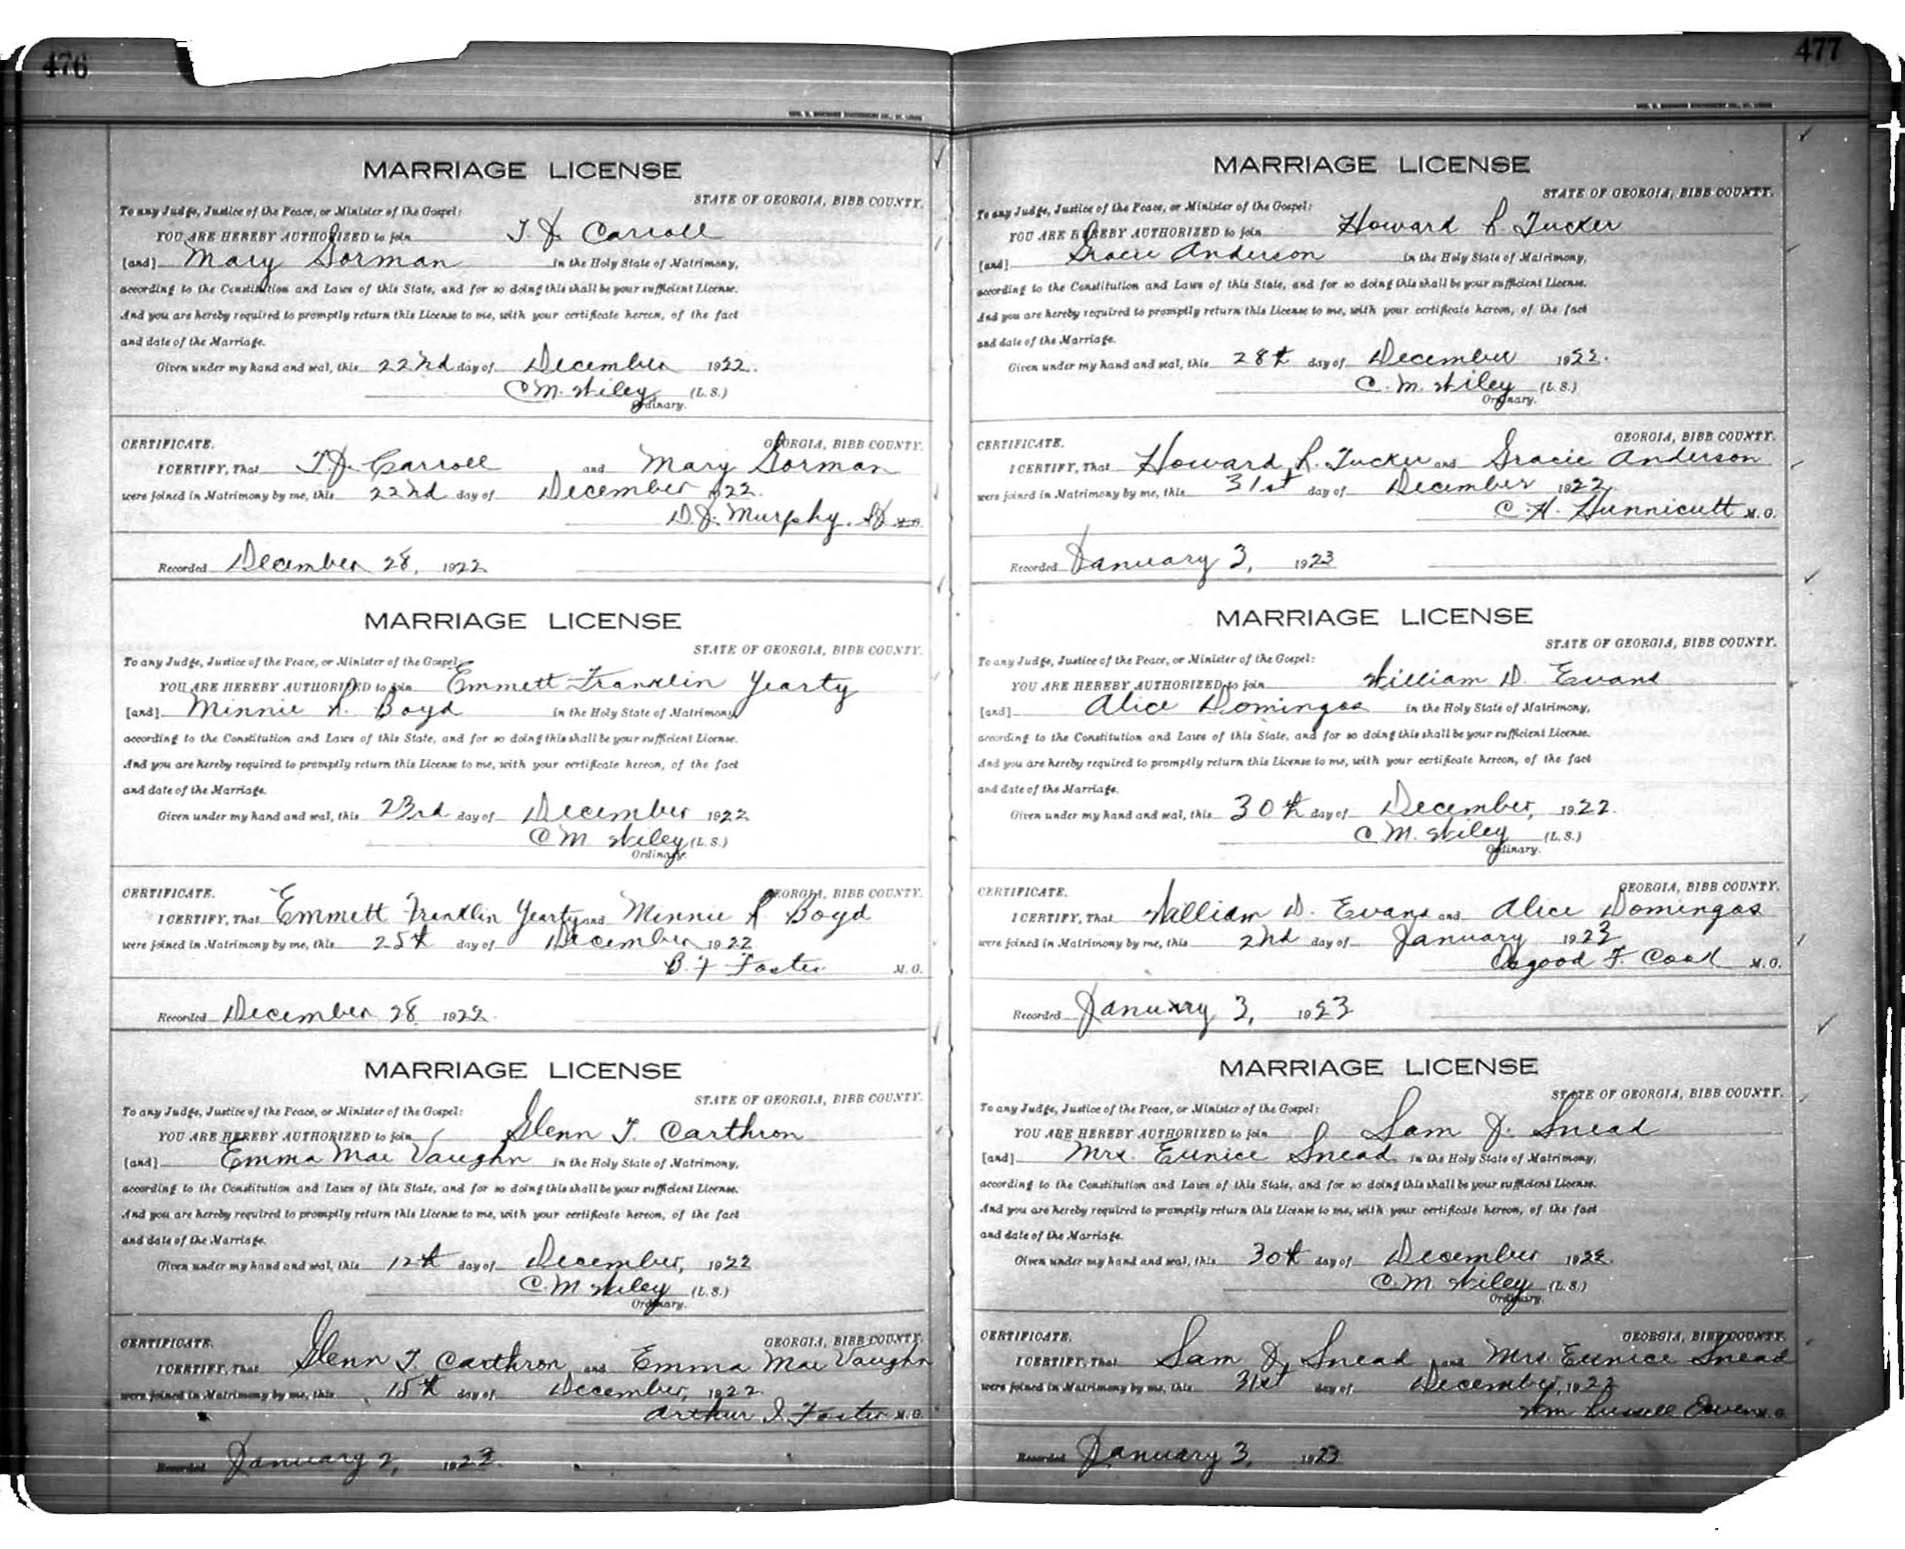 476
MARRIAGE LICENSE
STATE OF GEORGIA, BIBB COUNTY.
To any Judge, Justice of the Peace, or Minister of the Gospel:
YOU ARE HEREBY AUTHORIZED to join T. J. Carroll
[and] Mary Gorman in the Holy State of Matrimony,
according to the Constitution and Laws of this State, and for so doing this shall be your sufficient License.
And you are hereby required to promptly return this License to me, with your certificate hereon, of the fact
and date of the Marriage.
Given under my hand and seal, this 22nd day of December 1922.
C M. Wiley (L.S.)
Ordinary.
CERTIFICATE. GEORGIA, BIBB COUNTY.
I CERTIFY, That T. J. Carroll and Mary Gorman
were joined in Matrimony by me, this 22nd day of December 1922.
D. J. Murphy. SJ M.G.
Recorded December 28, 1922
MARRIAGE LICENSE
STATE OF GEORGIA, BIBB COUNTY.
To any Judge, Justice of the Peace, or Minister of the Gospel:
YOU ARE HEREBY AUTHORIZED to join Emmett Franklin Yearty
[and] Minnie R. Boyd in the Holy State of Matrimony,
according to the Constitution and Laws of this State, and for so doing this shall be your sufficient License.
And you are hereby required to promptly return this License to me, with your certificate hereon, of the fact
and date of the Marriage.
Given under my hand and seal, this 23rd day of December 1922
C M Wiley (L.S.)
Ordinary.
CERTIFICATE. GEORGIA, BIBB COUNTY.
I CERTIFY, That Emmett Franklin Yearty and Minnie R Boyd
were joined in Matrimony by me, this 25th day of December 1922
B. F Foster M.G.
Recorded December 28, 1922.
MARRIAGE LICENSE
STATE OF GEORGIA, BIBB COUNTY.
To any Judge, Justice of the Peace, or Minister of the Gospel:
YOU ARE HEREBY AUTHORIZED to join Glenn T. Carthron
[and] Emma Mae Vaughn in the Holy State of Matrimony,
according to the Constitution and Laws of this State, and for so doing this shall be your sufficient License.
And you are hereby required to promptly return this License to me, with your certificate hereon, of the fact
and date of the Marriage.
Given under my hand and seal, this 12th day of December, 1922
C. M Wiley (L.S.)
Ordinary.
CERTIFICATE. GEORGIA, BIBB COUNTY.
I CERTIFY, That Glenn T. Carthron and Emma Mae Vaughn
were joined in Matrimony by me, this 15th day of December, 1922
Arthur J. Foster M.G.
Recorded January 2, 1923.
477
MARRIAGE LICENSE
STATE OF GEORGIA, BIBB COUNTY.
To any Judge, Justice of the Peace, or Minister of the Gospel:
YOU ARE HEREBY AUTHORIZED to join Howard R. Tucker
[and] Gracie Anderson in the Holy State of Matrimony,
according to the Constitution and Laws of this State, and for so doing this shall be your sufficient License.
And you are hereby required to promptly return this License to me, with your certificate hereon, of the fact
and date of the Marriage.
Given under my hand and seal, this 28th day of December 1922.
C. M. Wiley (L.S.)
Ordinary.
CERTIFICATE. GEORGIA, BIBB COUNTY.
I CERTIFY, That Howard R. Tucker and Gracie Anderson
were joined in Matrimony by me, this 31st day of December 1922.
C. H. Hunnicutt M.G.
Recorded January 3, 1923
MARRIAGE LICENSE
STATE OF GEORGIA, BIBB COUNTY.
To any Judge, Justice of the Peace, or Minister of the Gospel:
YOU ARE HEREBY AUTHORIZED to join William D. Evans
[and] Alice Domingos in the Holy State of Matrimony,
according to the Constitution and Laws of this State, and for so doing this shall be your sufficient License.
And you are hereby required to promptly return this License to me, with your certificate hereon, of the fact
and date of the Marriage.
Given under my hand and seal, this 30th day of December, 1922.
C M. Wiley (L.S.)
Ordinary.
CERTIFICATE. GEORGIA, BIBB COUNTY.
I CERTIFY, That William D. Evans and Alice Domingos
were joined in Matrimony by me, this 2nd day of January 1923
Osgood F. Cook M.G.
Recorded January 3, 1923
MARRIAGE LICENSE
STATE OF GEORGIA, BIBB COUNTY.
To any Judge, Justice of the Peace, or Minister of the Gospel:
YOU ARE HEREBY AUTHORIZED to join Sam J. Snead
[and] Mrs. Eunice Snead in the Holy State of Matrimony,
according to the Constitution and Laws of this State, and for so doing this shall be your sufficient License.
And you are hereby required to promptly return this License to me, with your certificate hereon, of the fact
and date of the Marriage.
Given under my hand and seal, this 30th day of December 1922.
C. M Wiley (L.S.)
Ordinary.
CERTIFICATE. GEORGIA, BIBB COUNTY.
I CERTIFY, That Sam J, Snead and Mrs. Eunice Snead
were joined in Matrimony by me, this 31st day of December, 1922
Wm Russell Owen M.G.
Recorded January 3, 1923